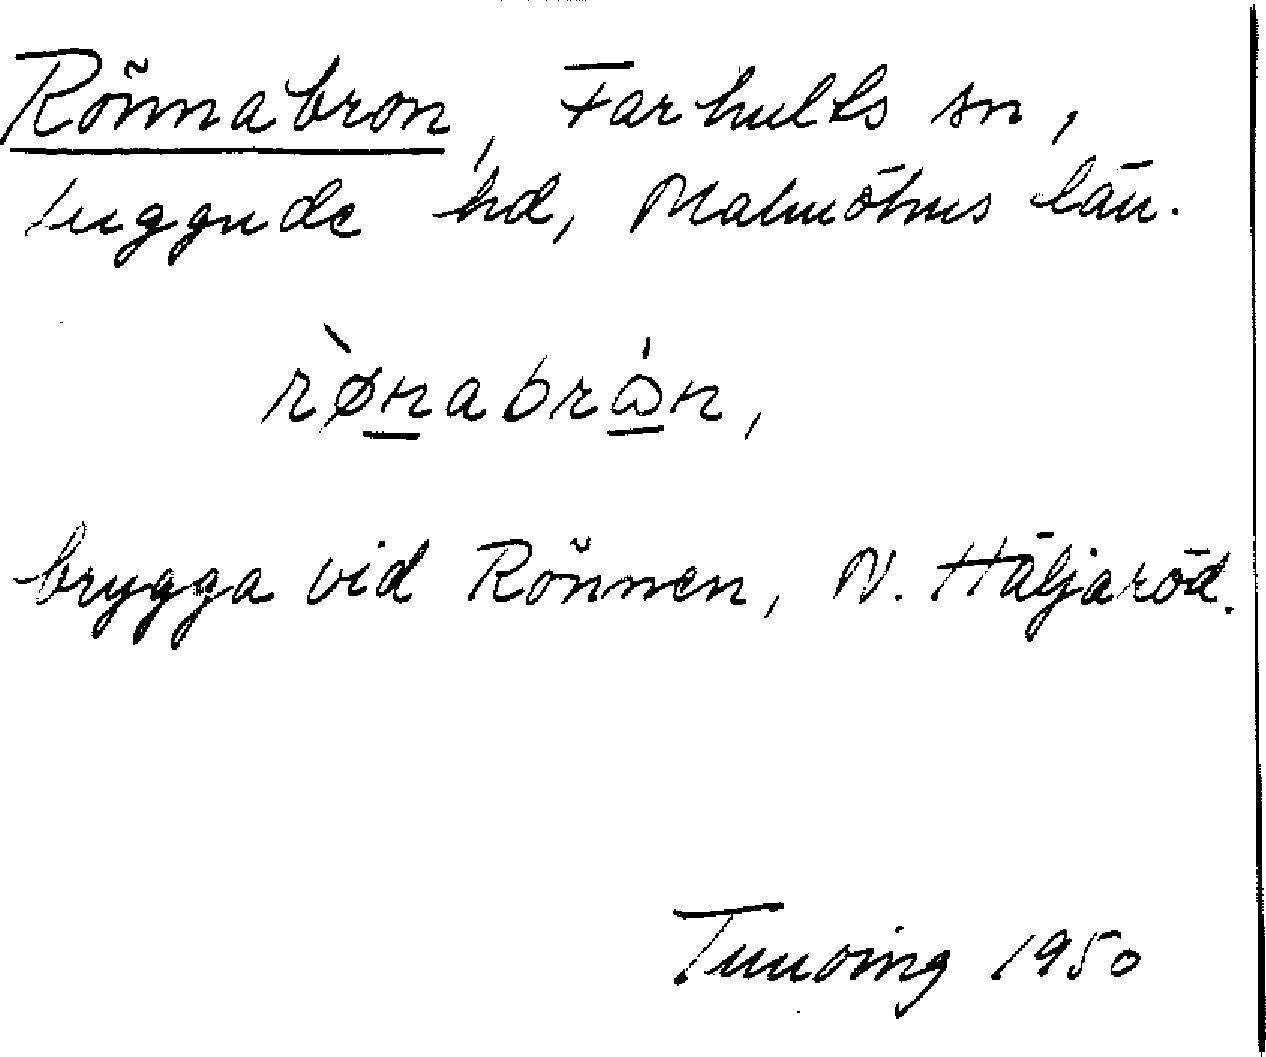 Rönnabron, Farhults sn,
Luggude hd, Malmöhus län.
rø̀nabrån,
brygga vid Rönnen, N. Häljaröd.
1950